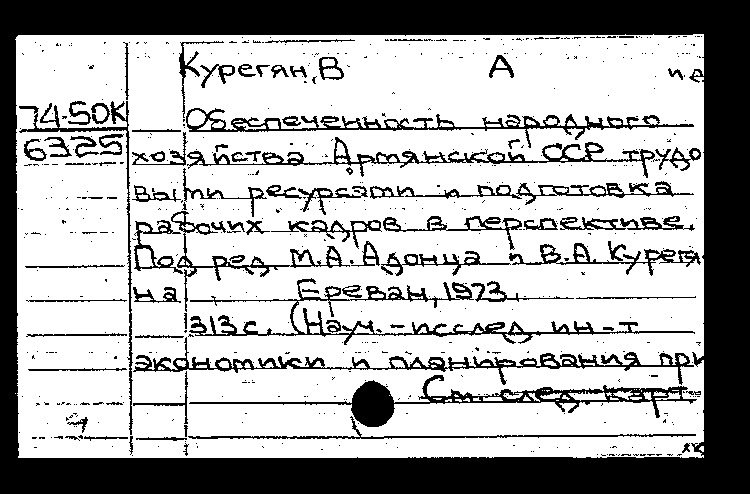 Курегян, В А
74-50К Обеспеченность народного
6325 хозяйства Армянской ССР трудо
выми ресурсами и подготовка
рабочих кадров в перспективе.
Под ред. М.А. Адонца и В.А. Курегя-
на Ереван, 1973.
313 с. (Науч.-исслед. ин-т
экономики и планирования при
См. след. карт.